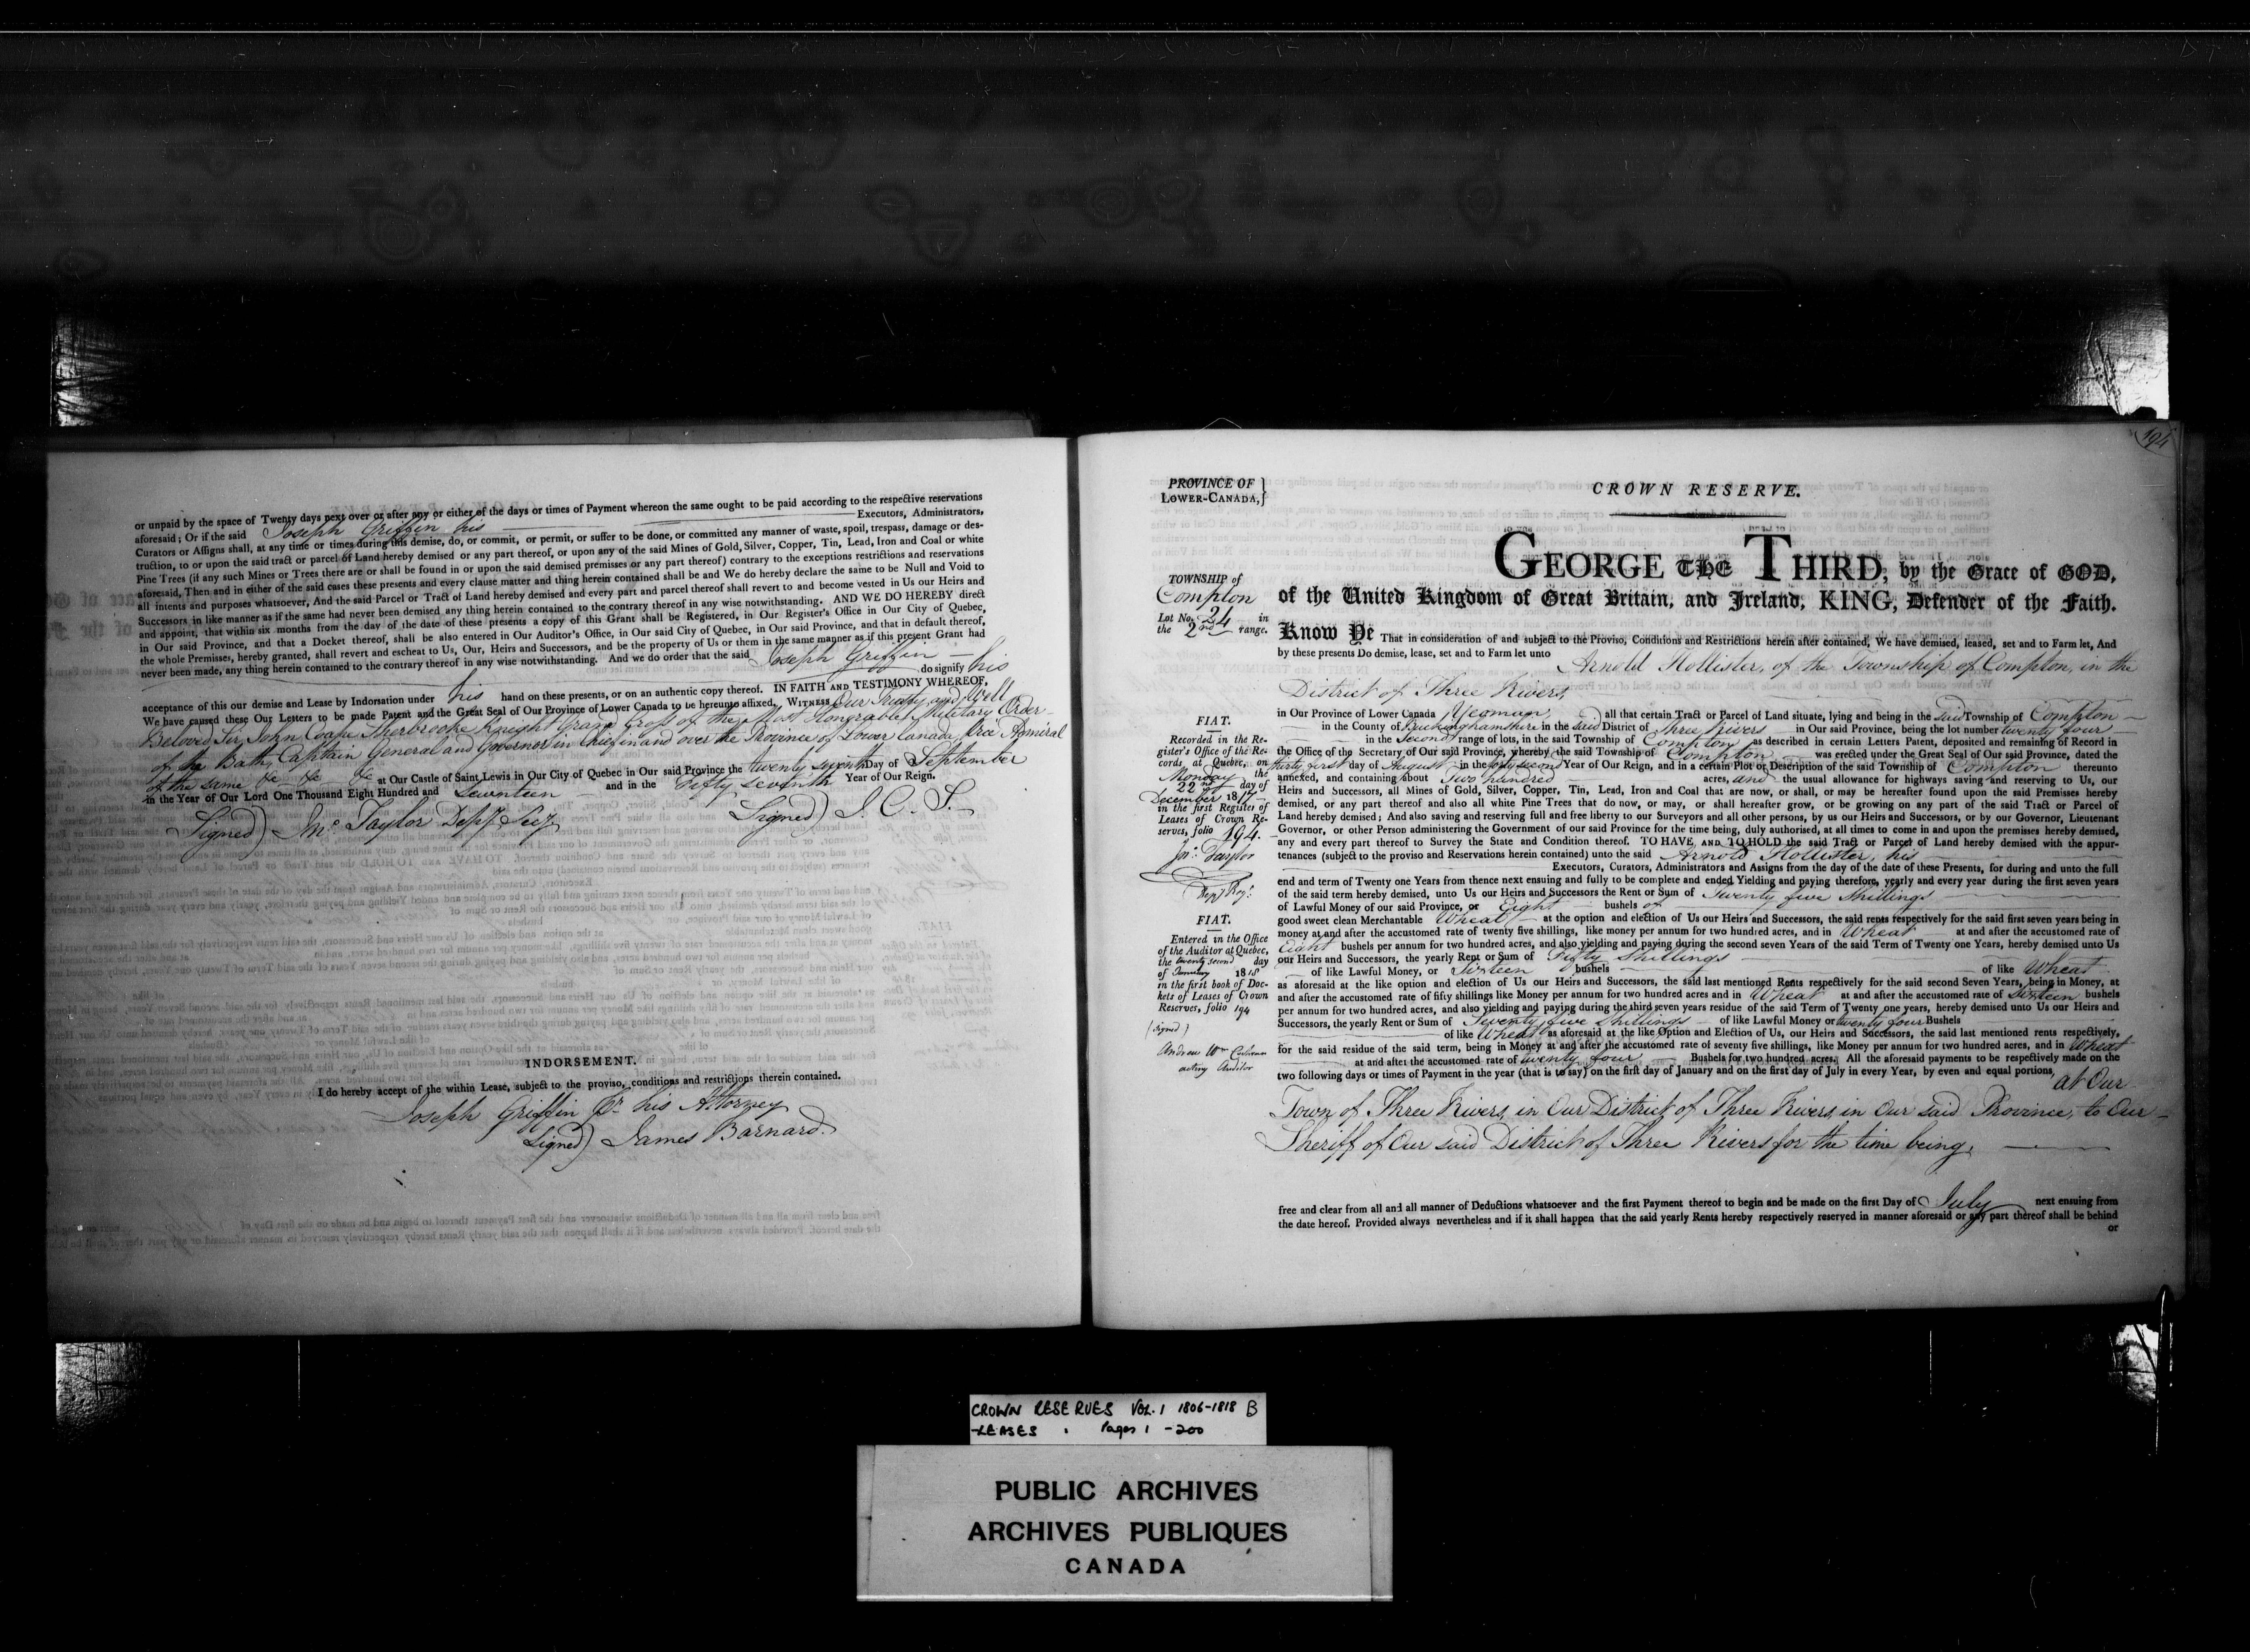 or unpaid by the space of Twenty days next over or after any or either of the days or times of Payment whereon the same ought to be paid according to the respective reservations
aforesaid; Or if the said Joseph Griffin his Executors, Administrators,
Curators or Assigns shall, at any time or times during this demise, do, or commit, or permit, or suffer to be done, or committed any manner of waste, spoil, trespass, damage or des-
truction, to or upon the said tract or parcel of Land hereby demised or any part thereof, or upon any of the said Mines of Gold, Silver, Copper, Tin, Lead, Iron and Coal or white
Pine Trees (if any such Mines or Trees there are or shall be found in or upon the said demised premises or any part thereof) contrary to the exceptions restrictions and reservations
aforesaid, Then and in either of the said cases these presents and every clause matter and thing herein contained shall be and We do hereby declare the same to be Null and Void to
all intents and purposes whatsoever, And the said Parcel or Tract of Land hereby demised and every part and parcel thereof shall revert to and become vested in Us our Heirs and
Successors in like manner as if the same had never been demised any thing herein contained to the contrary thereof in any wise notwithstanding. AND WE DO HEREBY direct
and appoint, that within six months from the day of the date of these presents a copy of this Grant shall be Registered, in Our Register's Office in Our City of Quebec,
in Our said Province, and that a Docket thereof, shall be also entered in Our Auditor's Office, in Our said City of Quebec, in Our said Province, and that in default thereof,
the whole Premises, hereby granted, shall revert and escheat to Us, Our, Heirs and Successors, and be the property of Us or them in the same manner as if this present Grant had
never been made, any thing herein contained to the contrary thereof in any wise notwithstanding. And we do order that the said Joseph Griffin
do signify his
acceptance of this our demise and Lease by Indorsation under his hand on these presents, or on an authentic copy thereof. IN FAITH AND TESTIMONY WHEREOF,
We have caused these Our Letters to be made Patent and the Great Seal of Our Province of Lower Canada to be hereunto affixed, WITNESS Our Trusty and Well
Beloved Sir John Coape Sherbrooke Knight Grand Cross of the Most Honorable Military Order
of the Bath, Captain General and Governor in Chief in and over the Province of Lower Canada, Vice Admiral
of the same &c &c &c at Our Castle of Saint Lewis in Our City of Quebec in Our said Province the twenty seventh Day of September
in the Year of Our Lord One Thousand Eight Hundred and Seventeen and in the Fifty seventh Year of Our Reign.
Signed) Jno. Taylor Depy. Secy. Signed) J. C. S.
INDORSEMENT.
I do hereby accept of the within Lease, subject to the proviso, conditions and restrictions therein contained.
Joseph Griffin pr. his Attorney
Signed) James Barnard.
194
PROVINCE OF
LOWER-CANADA,
CROWN RESERVE.
TOWNSHIP of
Compton
Lot No. 24 in
the 2nd range.
GEORGE THE THIRD, by the Grace of GOD,
of the United Kingdom of Great Britain, and Ireland, KING, Defender of the Faith.
Know Ye That in consideration of and subject to the Proviso, Conditions and Restrictions herein after contained, We have demised, leased, set and to Farm let, And
by these presents Do demise, lease, set and to Farm let unto Arnold Hollister, of the Township of Compton, in the
District of Three Rivers,
in Our Province of Lower Canada Yeoman, all that certain Tract or Parcel of Land situate, lying and being in the Said Township of Compton
in the County of Buckinghamshire in the said District of Three Rivers in Our said Province, being the lot number twenty four
in the second range of lots, in the said Township of Compton as described in certain Letters Patent, deposited and remaining of Record in
the Office of the Secretary of Our said Province, whereby, the said Township of Compton was erected under the Great Seal of Our said Province, dated the
thirty first day of August in the forty second Year of Our Reign, and in a certain Plot or Description of the said Township of Compton thereunto
annexed, and containing about Two hundred acres, and the usual allowance for highways saving and reserving to Us, our
Heirs and Successors, all Mines of Gold, Silver, Copper, Tin, Lead, Iron and Coal that are now, or shall, or may be hereafter found upon the said Premises hereby
demised, or any part thereof and also all white Pine Trees that do now, or may, or shall hereafter grow, or be growing on any part of the said Tract or Parcel of
Land hereby demised; And also saving and reserving full and free liberty to our Surveyors and all other persons, by us our Heirs and Successors, or by our Governor, Lieutenant
Governor, or other Person administering the Government of our said Province for the time being, duly authorised, at all times to come in and upon the premises hereby demised,
any and every part thereof to Survey the State and Condition thereof. TO HAVE AND TO HOLD the said Tract or Parcel of Land hereby demised with the appur-
tenances (subject to the proviso and Reservations herein contained) unto the said Arnold Hollister, his
Executors, Curators, Administrators and Assigns from the day of the date of these Presents, for during and unto the full
end and term of Twenty one Years from thence next ensuing and fully to be complete and ended Yielding and paying therefore, yearly and every year during the first seven years
of the said term hereby demised, unto Us our Heirs and Successors the Rent or Sum of Twenty five Shillings
of Lawful Money of our said Province, or Eight bushels of
good sweet clean Merchantable Wheat, at the option and election of Us our Heirs and Successors, the said rents respectively for the said first seven years being in
money at and after the accustomed rate of twenty five shillings, like money per annum for two hundred acres, and in Wheat at and after the accustomed rate of
Eight bushels per annum for two hundred acres, and also yielding and paying during the second seven Years of the said Term of Twenty one Years, hereby demised unto Us
our Heirs and Successors, the yearly Rent or Sum of Fifty Shillings
of like Lawful Money, or Sixteen bushels of like Wheat
as aforesaid at the like option and election of Us our Heirs and Successors, the said last mentioned Rents respectively for the said second Seven Years, being in Money, at
and after the accustomed rate of fifty shillings like Money per annum for two hundred acres and in Wheat at and after the accustomed rate of Sixteen bushels
per annum for two hundred acres, and also yielding and paying during the third seven years residue of the said Term of Twenty one years, hereby demised unto Us our Heirs and
Successors, the yearly Rent or Sum of Seventy five Shillings of like Lawful Money or twenty four Bushels
of like Wheat as aforesaid at the like Option and Election of Us, our Heirs and Successors, the said last mentioned rents respectively,
for the said residue of the said term, being in Money at and after the accustomed rate of seventy five shillings, like Money per annum for two hundred acres, and in Wheat
at and after the accustomed rate of twenty four Bushels for two hundred acres. All the aforesaid payments to be respectively made on the
two following days or times of Payment in the year (that is to say) on the first day of January and on the first day of July in every Year, by even and equal portions, at Our
Town of Three Rivers, in Our District of Three Rivers, in Our said Province, to Our
Sheriff of Our said District of Three Rivers for the time being,
free and clear from all and all manner of Deductions whatsoever and the first Payment thereof to begin and be made on the first Day of July next ensuing from
the date hereof. Provided always nevertheless and if it shall happen that the said yearly Rents hereby respectively reserved in manner aforesaid or any part thereof shall be behind
or
FIAT.
Recorded in the Re-
gister's Office of the Re-
cords, at Quebec, on
Monday the
22nd day of
December 1817
in the first Register of
Leases of Crown Re-
serves, folio 194.
Jno. Taylor
Depy. Regr.
FIAT.
Entered in the Office
of the Auditor at Quebec,
the twenty second day
of January 1818
in the first book of Doc-
kets of Leases of Crown
Reserves, folio 194
(signed)
Andrew Wm Cochran
acting Auditor
CROWN RESERVES VOL. 1 1806-1818 B
-LEASES . Pages 1 - 200
PUBLIC ARCHIVES
ARCHIVES PUBLIQUES
CANADA